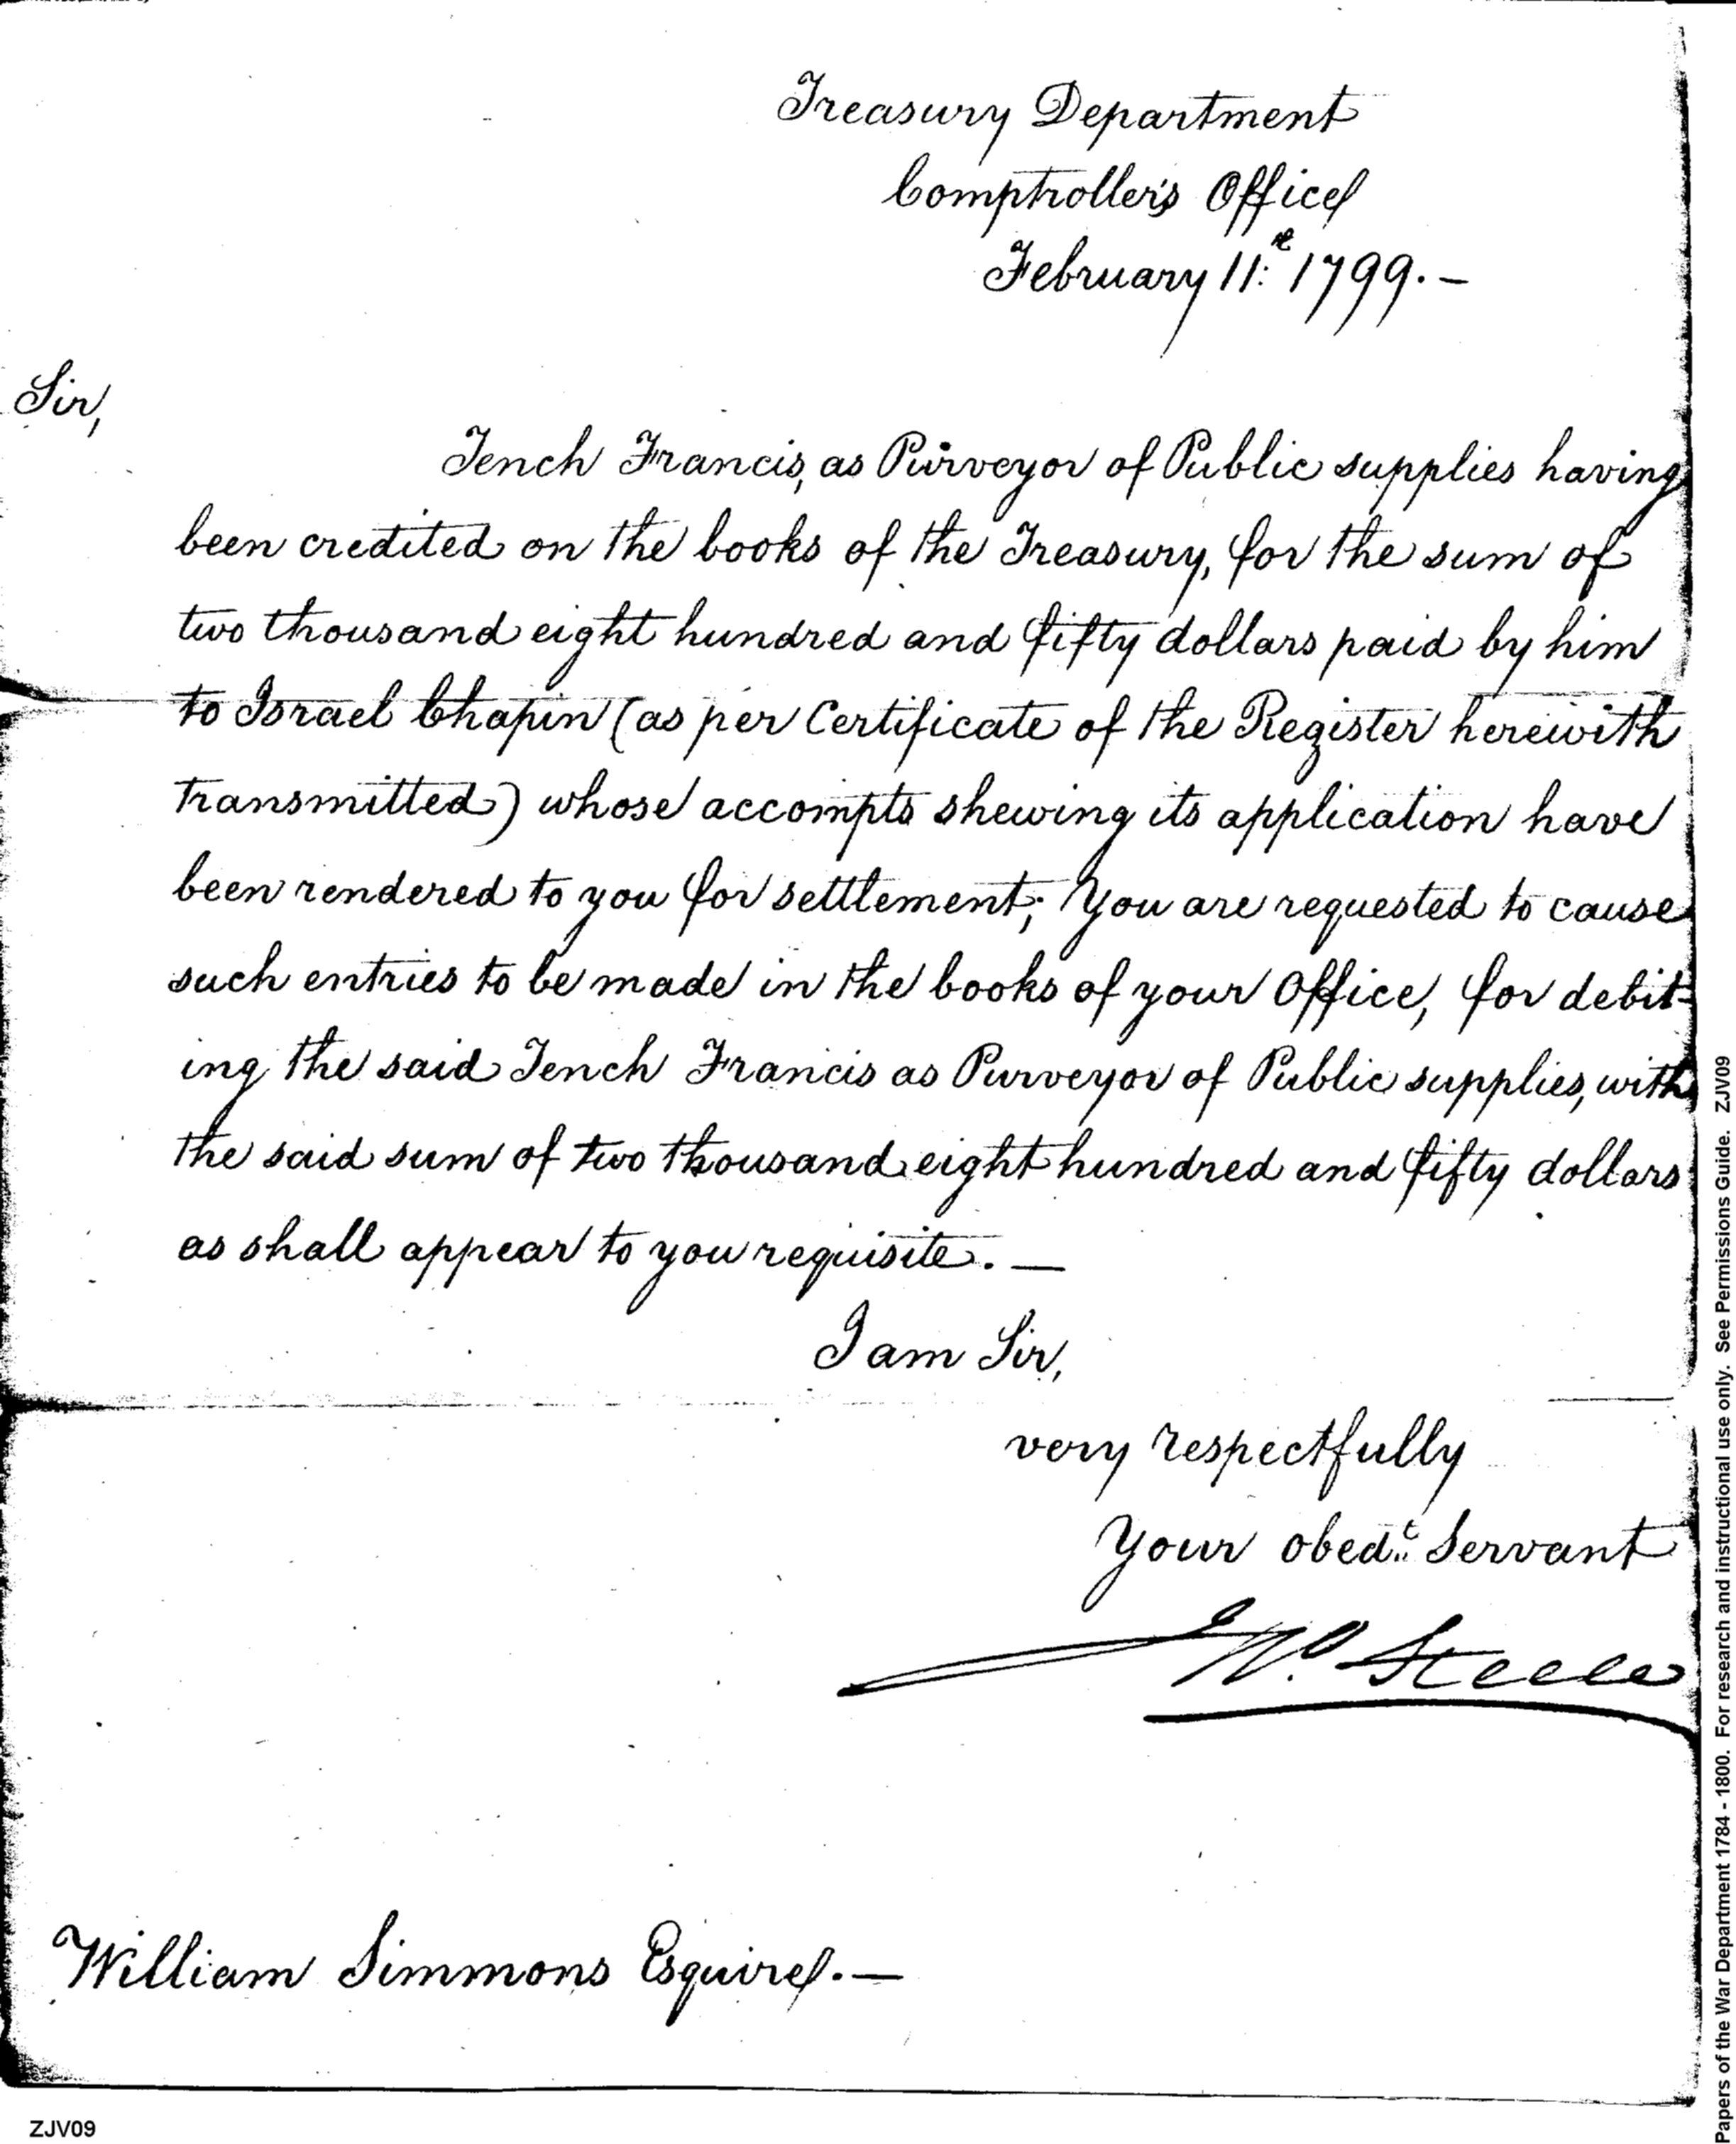 Treasury Department
Comptroller's Office
February 11th 1799. –
Sir,
Tench Francis, as Purveyor of Public supplies having
been credited on the books of the Treasury, for the sum of
two thousand eight hundred and fifty dollars paid by him
to Israel Chapin (as per Certificate of the Register herewith
transmitted) whose accompts shewing its application have
been rendered to you for settlement; You are requested to cause
such entries to be made in the books of your Office, for debit-
ing the said Tench Francis as Purveyor of Public supplies, with
the said sum of two thousand eight hundred and fifty dollars
as shall appear to you requisite. —
I am Sir,
very respectfully
Your obedt. Servant
Jno. Steele
William Simmons Esquire. —
ZJV09
Papers of the War Department 1784 - 1800. For research and instructional use only. See Permissions Guide. ZJV09